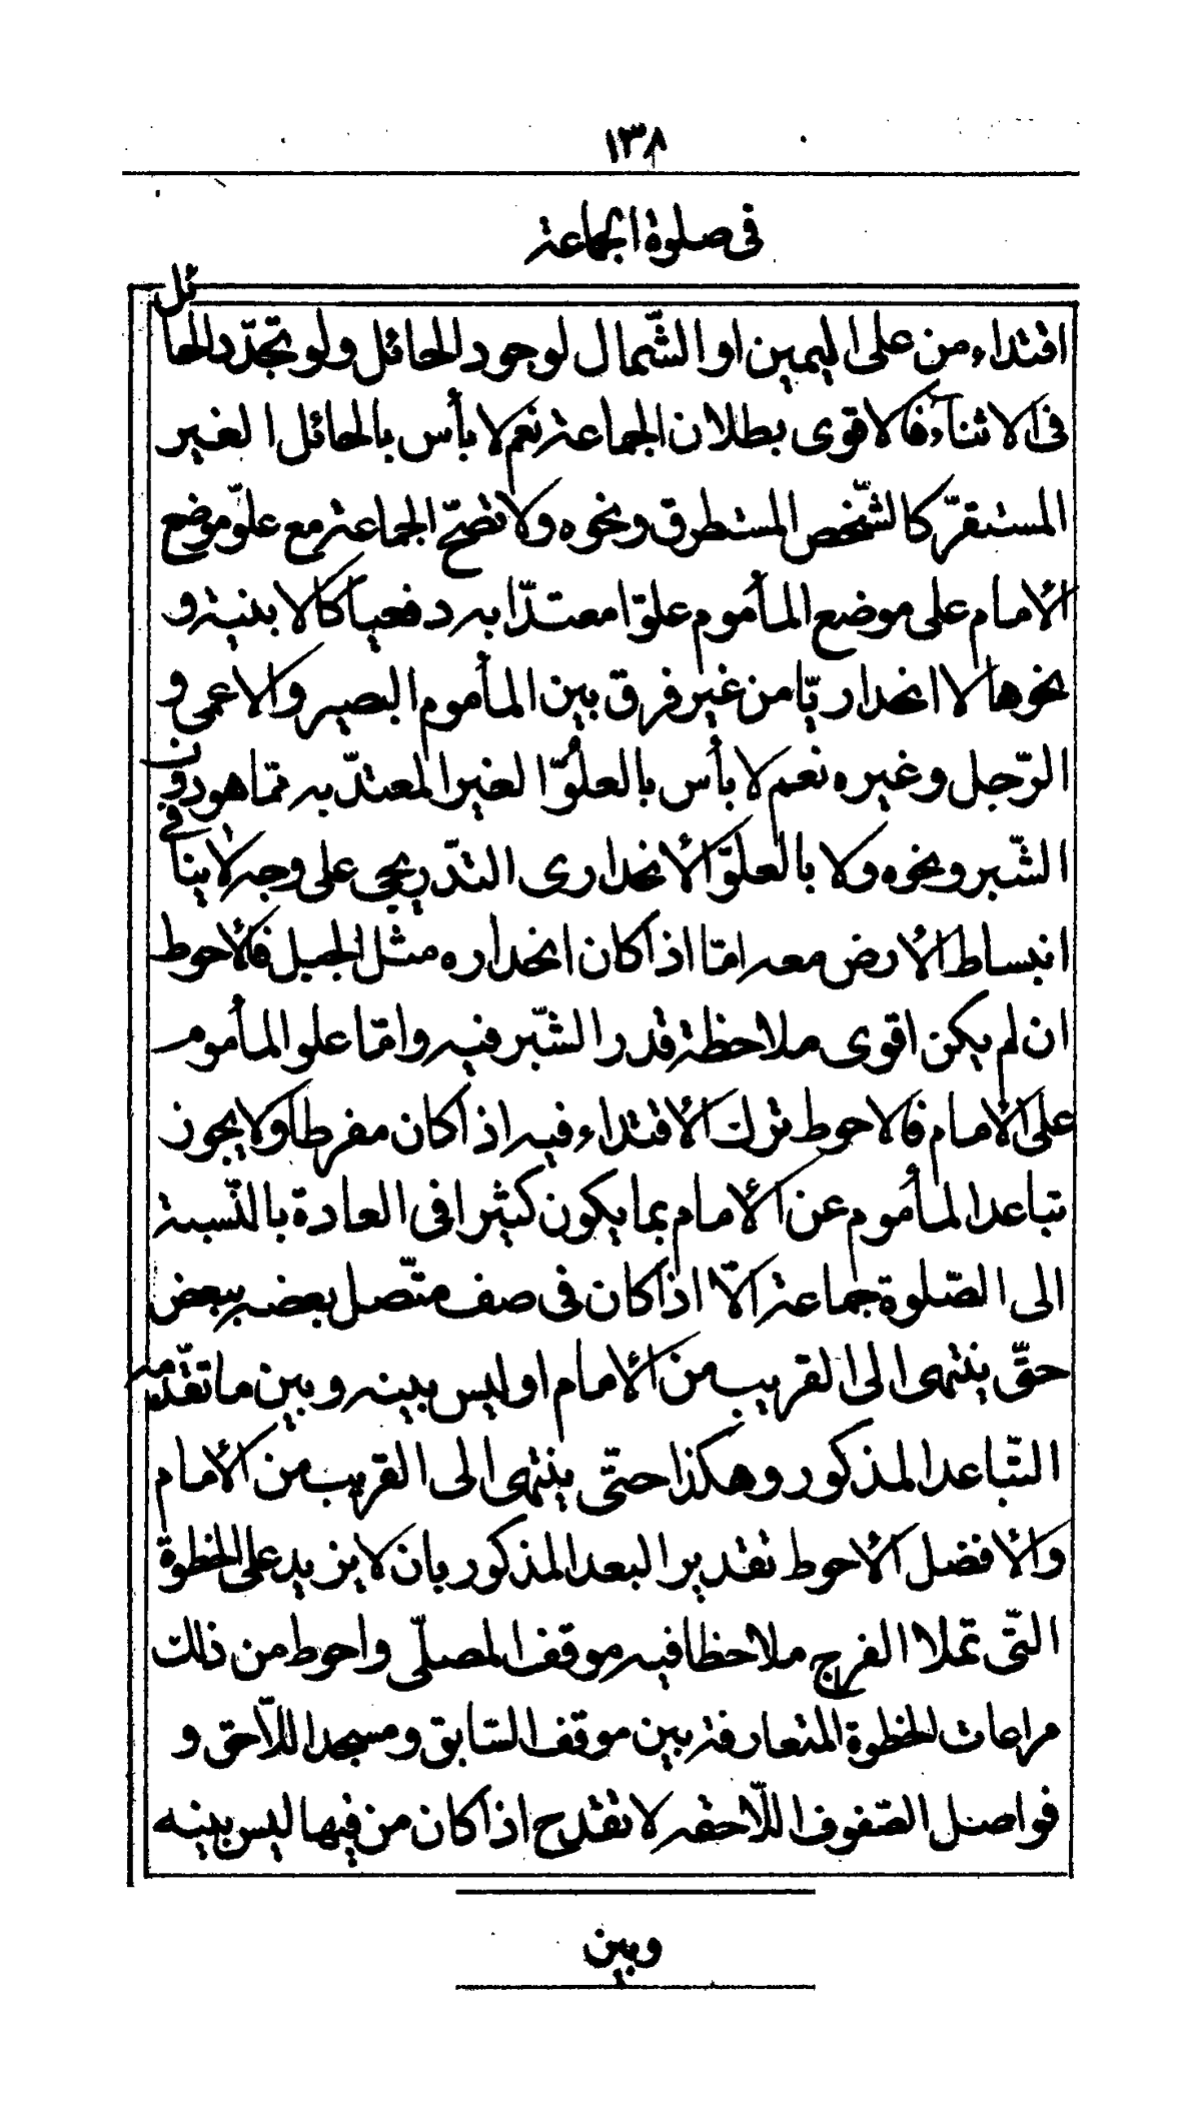 ١٣٨
فى صلوة الجماعة
اقتداء من على اليمين او الشّمال لوجود الحائل ولو تجدّد الحائل
فى الاثنآء فالاقوى بطلان الجماعة نعم لا بأس بالحائل الغير
المستقرّ كالشّخص المستطرق ونحوه ولا تصحّ الجماعة مع علوّ موضع
الأمام على موضع المأموم علوّا معتدّا به دفعيا كالابنية و
نحوها لا انحداريّا من غير فرق بين المأموم البصير والاعمى و
الرّجل وغيره نعم لا بأس بالعلوّ الغير المعتدّ به ممّا هو دون
الشّبر ونحوه ولا بالعلوّ الأنحدارى التدّريجى على وجه لا ينافى
انبساط الأرض معه امّا اذا كان انحداره مثل الجبل فالأحوط
ان لم يكن اقوى ملاحظة قدر الشّبر فيه وامّا علو المأموم
على الأمام فالاحوط ترك الأقتداء فيه اذا كان مفرطا ولا يجوز
تباعد المأموم عن الأمام بما يكون كثيرا فى العادة بالنّسبة
الى الصّلوة جماعة الّا اذا كان فى صف متّصل بعضه ببعض
حتّى ينتهى الى القريب من الأمام او ليس بينه وبين ما تقدّمه
التّباعد المذكور وهكذا حتّى ينتهى الى القريب من الأمام
والأفضل الأحوط تقدير البعد المذكور بان لا يزيد على الخطوة
التّى تملا الفرج ملاحظا فيه موقف المصلّى واحوط من ذلك
مراعات الخطوة المتعارفة بين موقف السّابق ومسجد اللّاحق و
فواصل الصّفوف اللّاحقه لا تقدح اذا كان من فيها ليس بينه
وبين